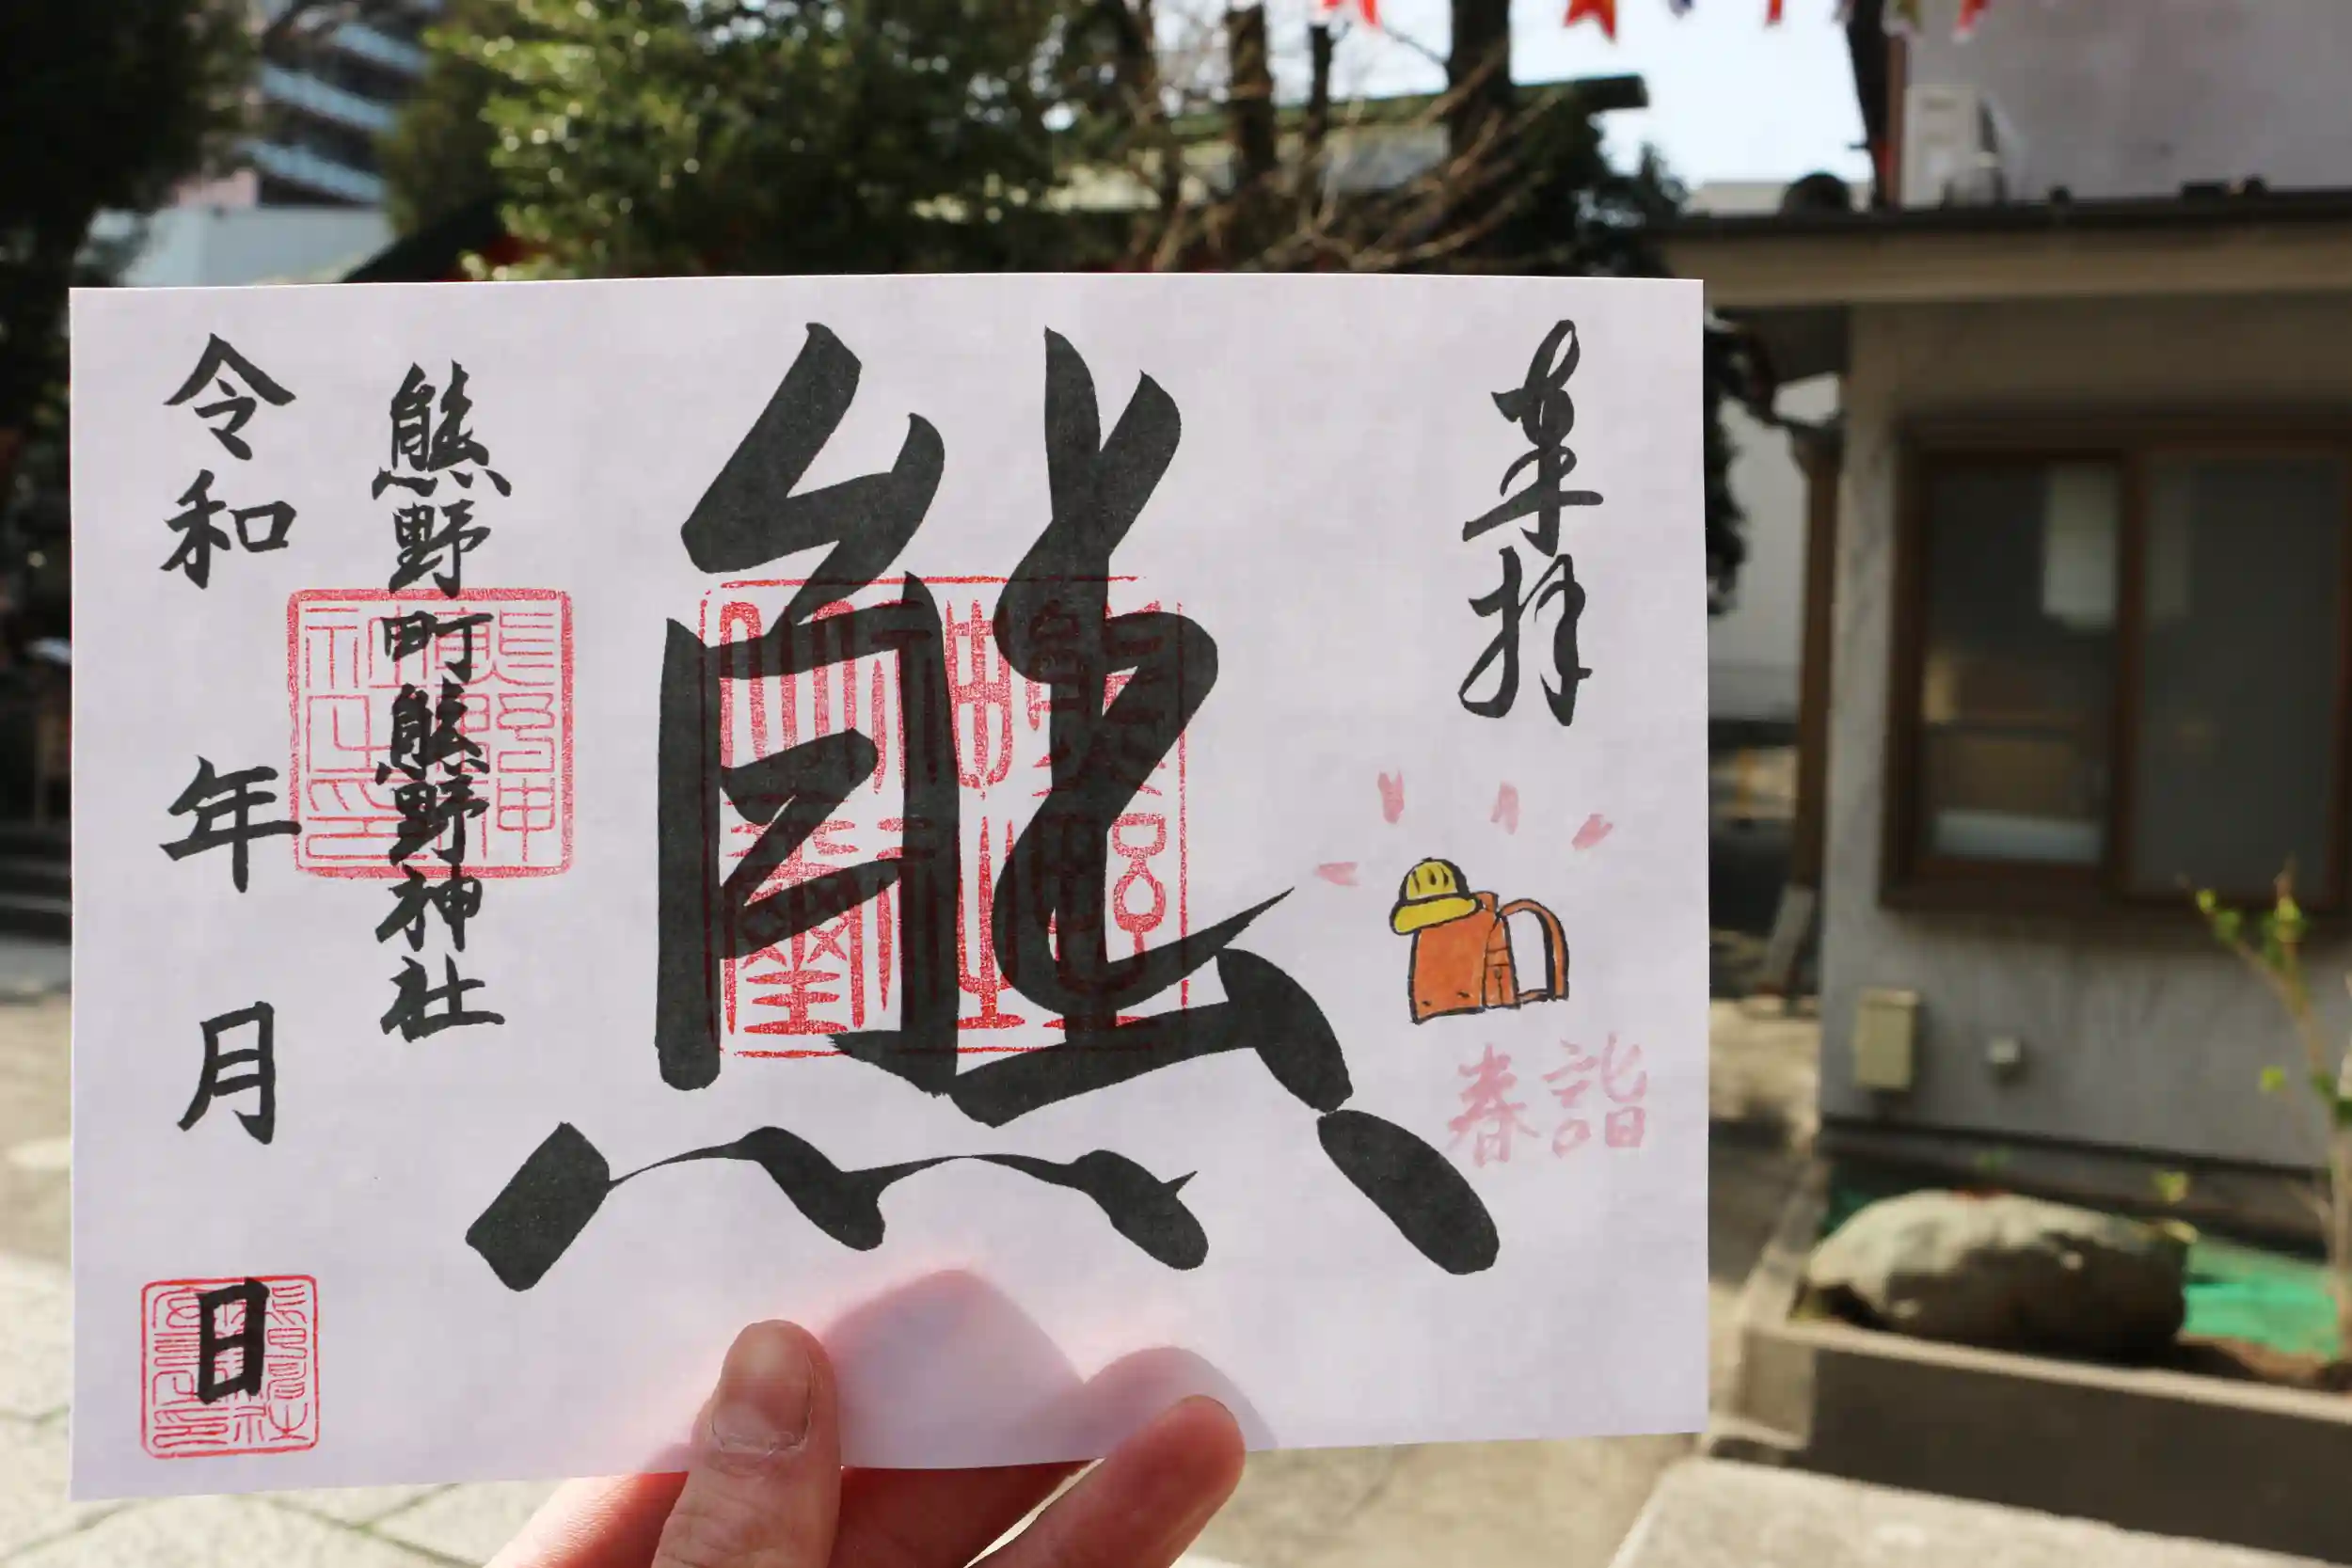 奉拝
春詣
熊
熊野町熊野神社
令和 年 月 日